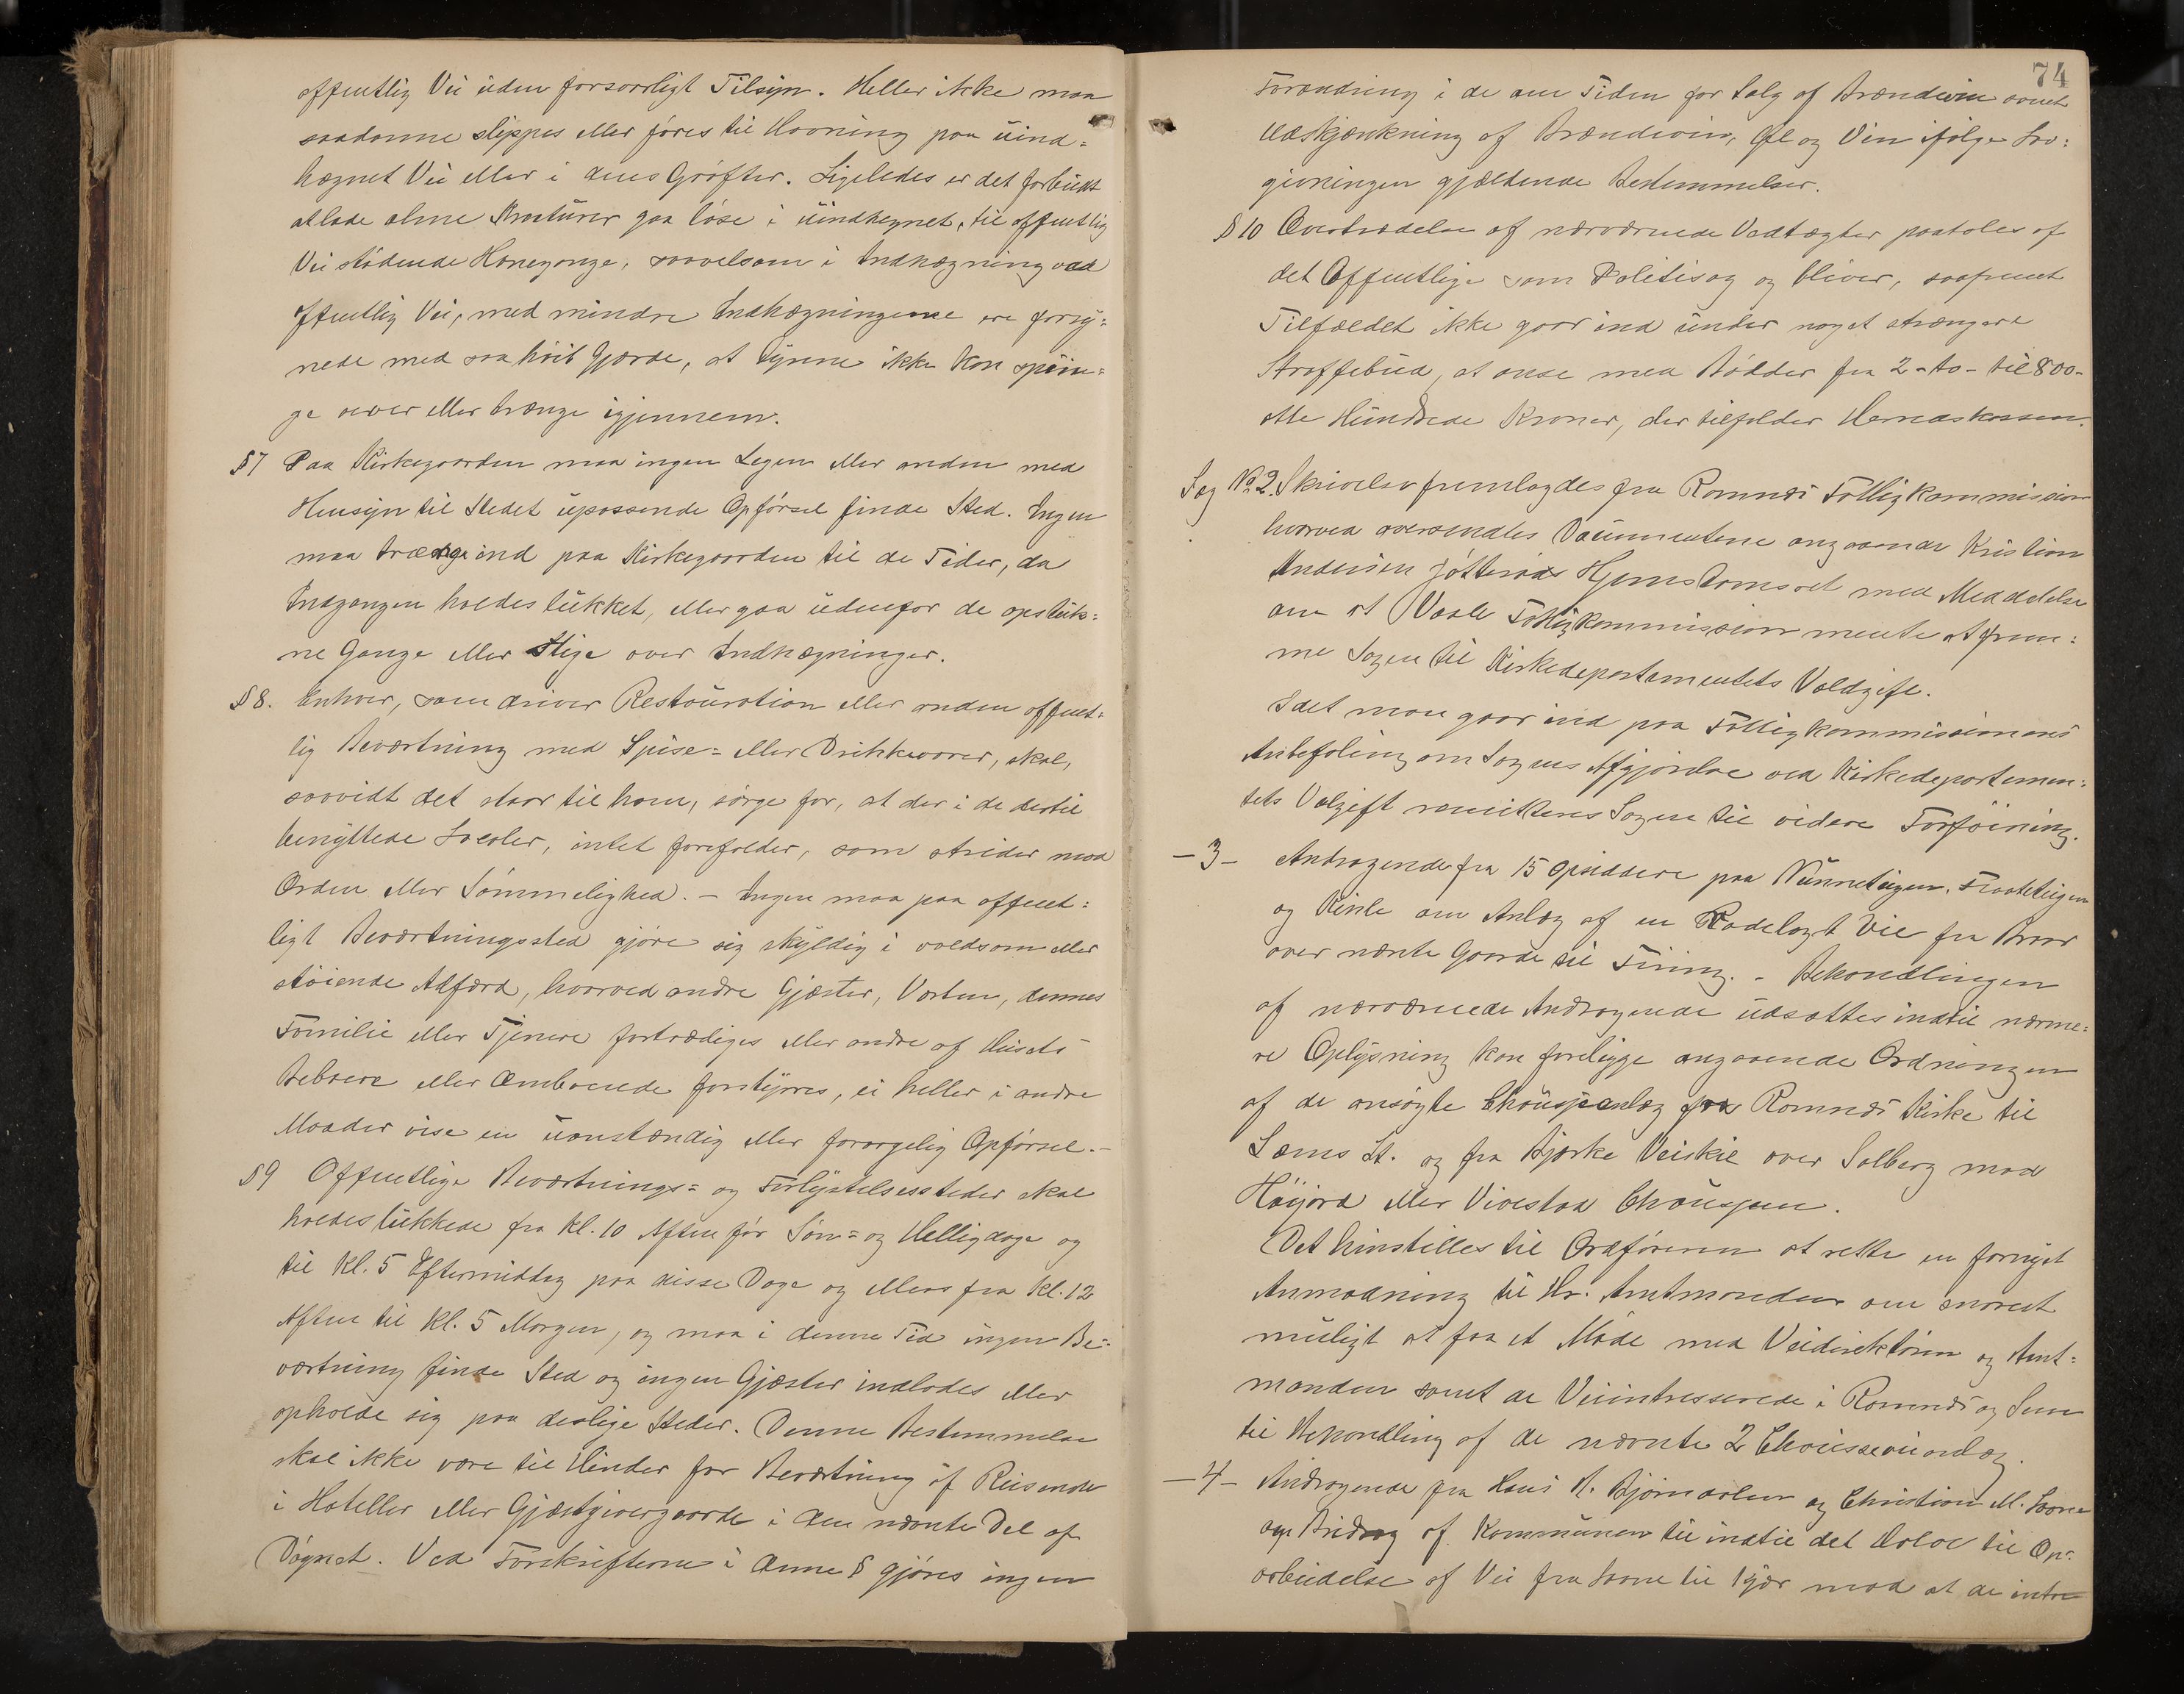 offentlig Vei uden forsvarligt Tilsyn. Heller ikke maa
saadanne slippes eller føres til Havning paa uind=
hægnet Vei eller i dens Grøfter. Ligeledes er det forbudt
at lade olme Kreaturer gaa løse i uindhegnet, til offentlig
Vei stødende Havnegange, saavelsom i Indhægning ved
offentlig Vei, med mindre Indhægningerne ere forsy=
nede med saa høit Gjærde, at Dyrene ikke kan sprin=
ge over eller trænge igjennem.
§7 Paa Kirkegaarden maa ingen Legen eller anden med
Hensyn til Stedet upassende Opførsel finde Sted. Ingen
maa trænge ind paa Kirkegaarden til de Tider, da
Indgangen holdes lukket, eller gaa udenfor de opstuk=
ne Gange eller stige over Indhægninger.
§8. Enhver, som driver Restauration eller anden offent=
lig Beværtning med Spise= eller Drikkevarer, skal,
saavidt det staar til ham, sørge for, at der i de dertil
benyttede Lokaler, intet forefalder, som strider mod
Orden eller Sømmelighed. – Ingen maa paa offent=
ligt Beværtningssted gjøre sig skyldig i voldsom eller
støiende Adfærd, hvorved andre Gjæster, Verten, dennes
Familie eller Tjenere fortrædiges eller andre af Husets
Beboere eller Omboende forstyrres, ei heller i andre
Maader vise en uanstændig eller forargelig Opførsel.–
§9 Offentlige Beværtnings= og Forlystelsessteder skal
holdes lukkede fra Kl. 10 Aften før Søn= og Helligdage og
til Kl. 5 Eftermiddag paa disse Dage og ellers fra Kl. 12
Aften til Kl. 5 Morgen, og maa i denne Tid ingen Be=
værtning finde Sted og ingen Gjæster indlades eller
opholde sig paa deslige Steder. Denne Bestemmelse
skal ikke være til Hinder for Beværtning af Reisende
i Hoteller eller Gjæstgivergaarde i den nævnte Del af
Døgnet. Ved Forskrifterne i denne § gjøres ingen
74
Forandring i de om Tiden for Salg af Brændevin samt
Udskjænkning af Brændevin, Øl og Vin ifølge Lov=
givningen gjældende Bestemmelser.
§10 Overtrædelse af nærværende Vedtægter paatales af
det Offentlige som Politisag og bliver, saafremt
Tilfældet ikke gaar ind under noget strængere
Straffebud, at anse med Bødder fra 2 -to- til 800-
otte Hundrede Kroner, der tilfalder Herredskassen.
Sag No 2. Skrivelse fremlagdes fra Ramnæs Fattigkommission
hvorved oversendtes Documenterne angaaende Kristian
Andersen Jøtterøds Hjemstavnsret med Meddelelse
om at Vaale Fattigkommission mente at frem=
me Sagen til Kirkedepartementets Voldgift.
Idet man gaar ind paa Fattigkommissionens
Anbefaling om Sagens Afgjørelse ved Kirkedepartemen=
tets Volgift remitteres Sagen til videre Forføining.
–3– Andragende fra 15 Opsiddere paa
og om Anlæg af en Rodelagt Vei fra
over nævnte Gaarde til – Behandlingen
af nærværende Andragende udsættes indtil nærme=
re Oplysning kan foreligge angaaende Ordningen
af de ansøgte Chausséanlæg fra Ramnæs Kirke til
Sems St. og fra Bjerke Veiskil over Solberg mod
Høijord eller Vivestad Chausseen.
Det henstilles til Ordføreren at rette en fornyet
Anmodning til Hr. Amtmanden om snarest
muligt at faa et Møde med Veidirektøren og Amt=
manden samt de Veiinteresserede i Ramnæs og Sem
til Behandling af de nævnte 2 Chausseeanlæg.
–4– Andragende fra Hans A. Bjørndalen og Christian M.
om Bidrag af Kommunen til indtil det Halve til Op=
arbeidelse af Vei fra til mod at de